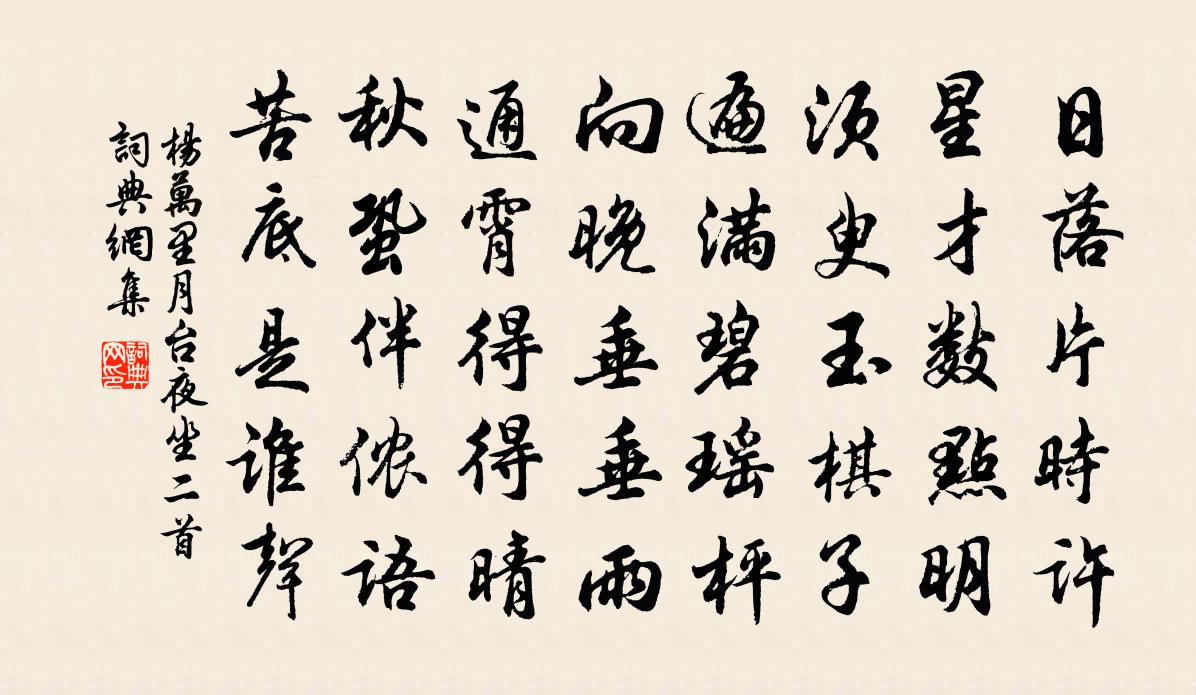 日落片時許
星才數點明
須臾玉棋子
遍滿碧瑤枰
向晚垂垂雨
通霄得得晴
秋蛩伴儂語
苦底是誰聲
楊萬里月台夜坐二首
詞典網集
詞典網印